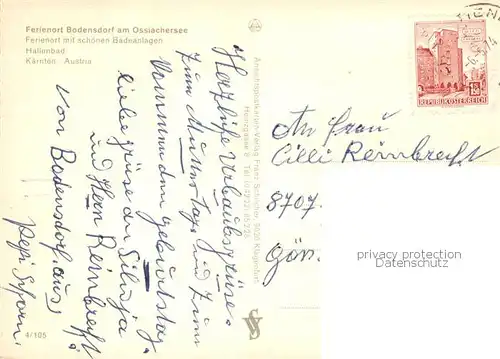 Ferienort Bodensdorf am Ossiachersee
Ferienort mit schönen Badeanlagen
Hallenbad
Kärnten Austria
Herzliche Urlaubsgrüße
zum Muttertag und zum
kommendem Geburtstag
liebe grüße an Silvia
und Herrn Reinbrecht
von Bodensdorf aus,
Pepi
Ansichtspostkarten-Verlag Franz Schilcher, 9020 Klagenfurt
REPUBLIK ÖSTERREICH
An Frau
Cilli Reinbrecht
8707.
Göss.
privacy protection
watermark
4/105